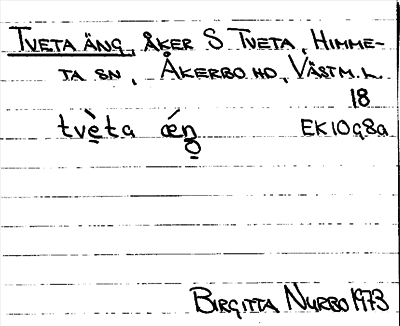 TVETA ÄNG, ÅKER S TVETA, HIMME-
TA SN, ÅKERBO HD, VÄSTM. L.
18
tvèta ǽn EK10g8a
BIRGITTA NURBO 1973